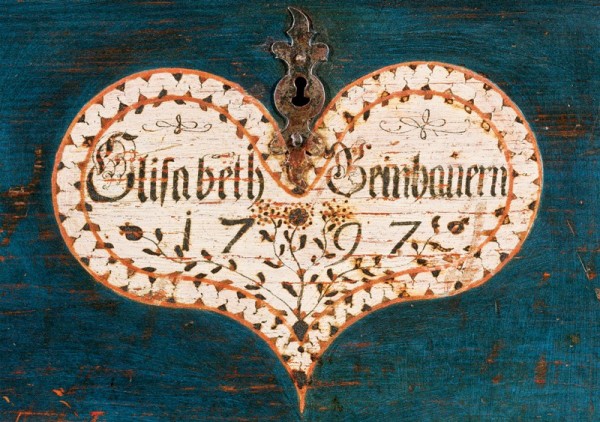 Elisabeth Beinhauern
1797